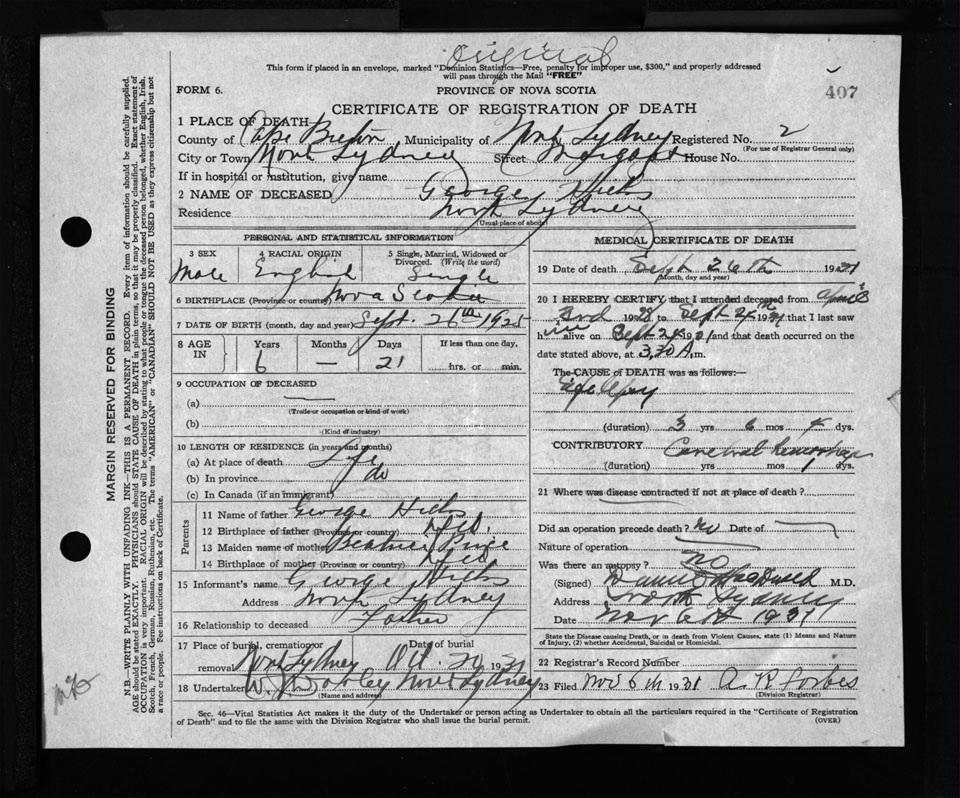 Original
This form if placed in an envelope, marked "Dominion Statistics—Free, penalty for improper use, $300," and properly addressed
will pass through the Mail "FREE"
FORM 6.
PROVINCE OF NOVA SCOTIA
407
CERTIFICATE OF REGISTRATION OF DEATH
1 PLACE OF DEATH
County of Cape Breton Municipality of North Sydney Registered No. 2
(For use of Registrar General only)
City or Town North Sydney Street House No.
If in hospital or institution, give name
2 NAME OF DECEASED George Hicks
Residence North Sydney
(Usual place of abode)
PERSONAL AND STATISTICAL INFORMATION
3 SEX 4 RACIAL ORIGIN 5 Single, Married, Widowed or
Divorced. (Write the word)
Male English Single
6 BIRTHPLACE (Province or country) Nova Scotia
7 DATE OF BIRTH (month, day and year) Sept. 26th 1925
8 AGE IN Years Months Days If less than one day,
6 — 21 hrs. or min.
9 OCCUPATION OF DECEASED
(a)
(Trade or occupation or kind of work)
(b)
(Kind of industry)
10 LENGTH OF RESIDENCE (in years and months)
(a) At place of death Life
(b) In province do
(c) In Canada (if an immigrant)
Parents
11 Name of father George Hicks
12 Birthplace of father (Province or country) Nfld.
13 Maiden name of mother Beatrice
14 Birthplace of mother (Province or country) Nfld
15 Informant's name George Hicks
Address North Sydney
16 Relationship to deceased Father
17 Place of burial, cremation or Date of burial
removal North Sydney Oct. 20 1931
18 Undertaker and address North Sydney
MEDICAL CERTIFICATE OF DEATH
19 Date of death Sept 26th 1931
(Month, day and year)
20 I HEREBY CERTIFY that I attended deceased from April
3rd 1928 to Sept 24th 1931 that I last saw
him alive on Sept 24 1931 and that death occurred on the
date stated above, at 3,30 A, m.
The CAUSE OF DEATH was as follows:—
Epilepsy
(duration) 3 yrs 6 mos dys.
CONTRIBUTORY Cerebral hemorrhage
(duration) yrs. mos. dys.
21 Where was disease contracted if not at place of death?
Did an operation precede death? no Date of
Nature of operation
Was there an autopsy? no
(Signed) M.D.
Address North Sydney
Date Nov 6th 1931
State the Disease causing Death, or in death from Violent Causes, state (1) Means and Nature
of Injury, (2) whether Accidental, Suicidal or Homicidal.
22 Registrar's Record Number
23 Filed Nov 6th 1931 A R Forbes
(Division Registrar)
Sec. 46—Vital Statistics Act makes it the duty of the Undertaker or person acting as Undertaker to obtain all the particulars required in the "Certificate of Registration
of Death" and to file the same with the Division Registrar who shall issue the burial permit.
(OVER)
MARGIN RESERVED FOR BINDING
N.B.—WRITE PLAINLY WITH UNFADING INK—THIS IS A PERMANENT RECORD. Every item of information should be carefully supplied.
AGE should be stated EXACTLY. PHYSICIANS should STATE CAUSE OF DEATH in plain terms, so that it may be properly classified. Exact statement of
OCCUPATION is very important. RACIAL ORIGIN will be described by stating to what people or tongue the deceased person belonged, whether English, Irish,
Scotch, French, German, Russian, Ruthenian, etc. The terms "AMERICAN" or "CANADIAN" SHOULD NOT BE USED as they express citizenship but not
a race or people. See instructions on back of Certificate.